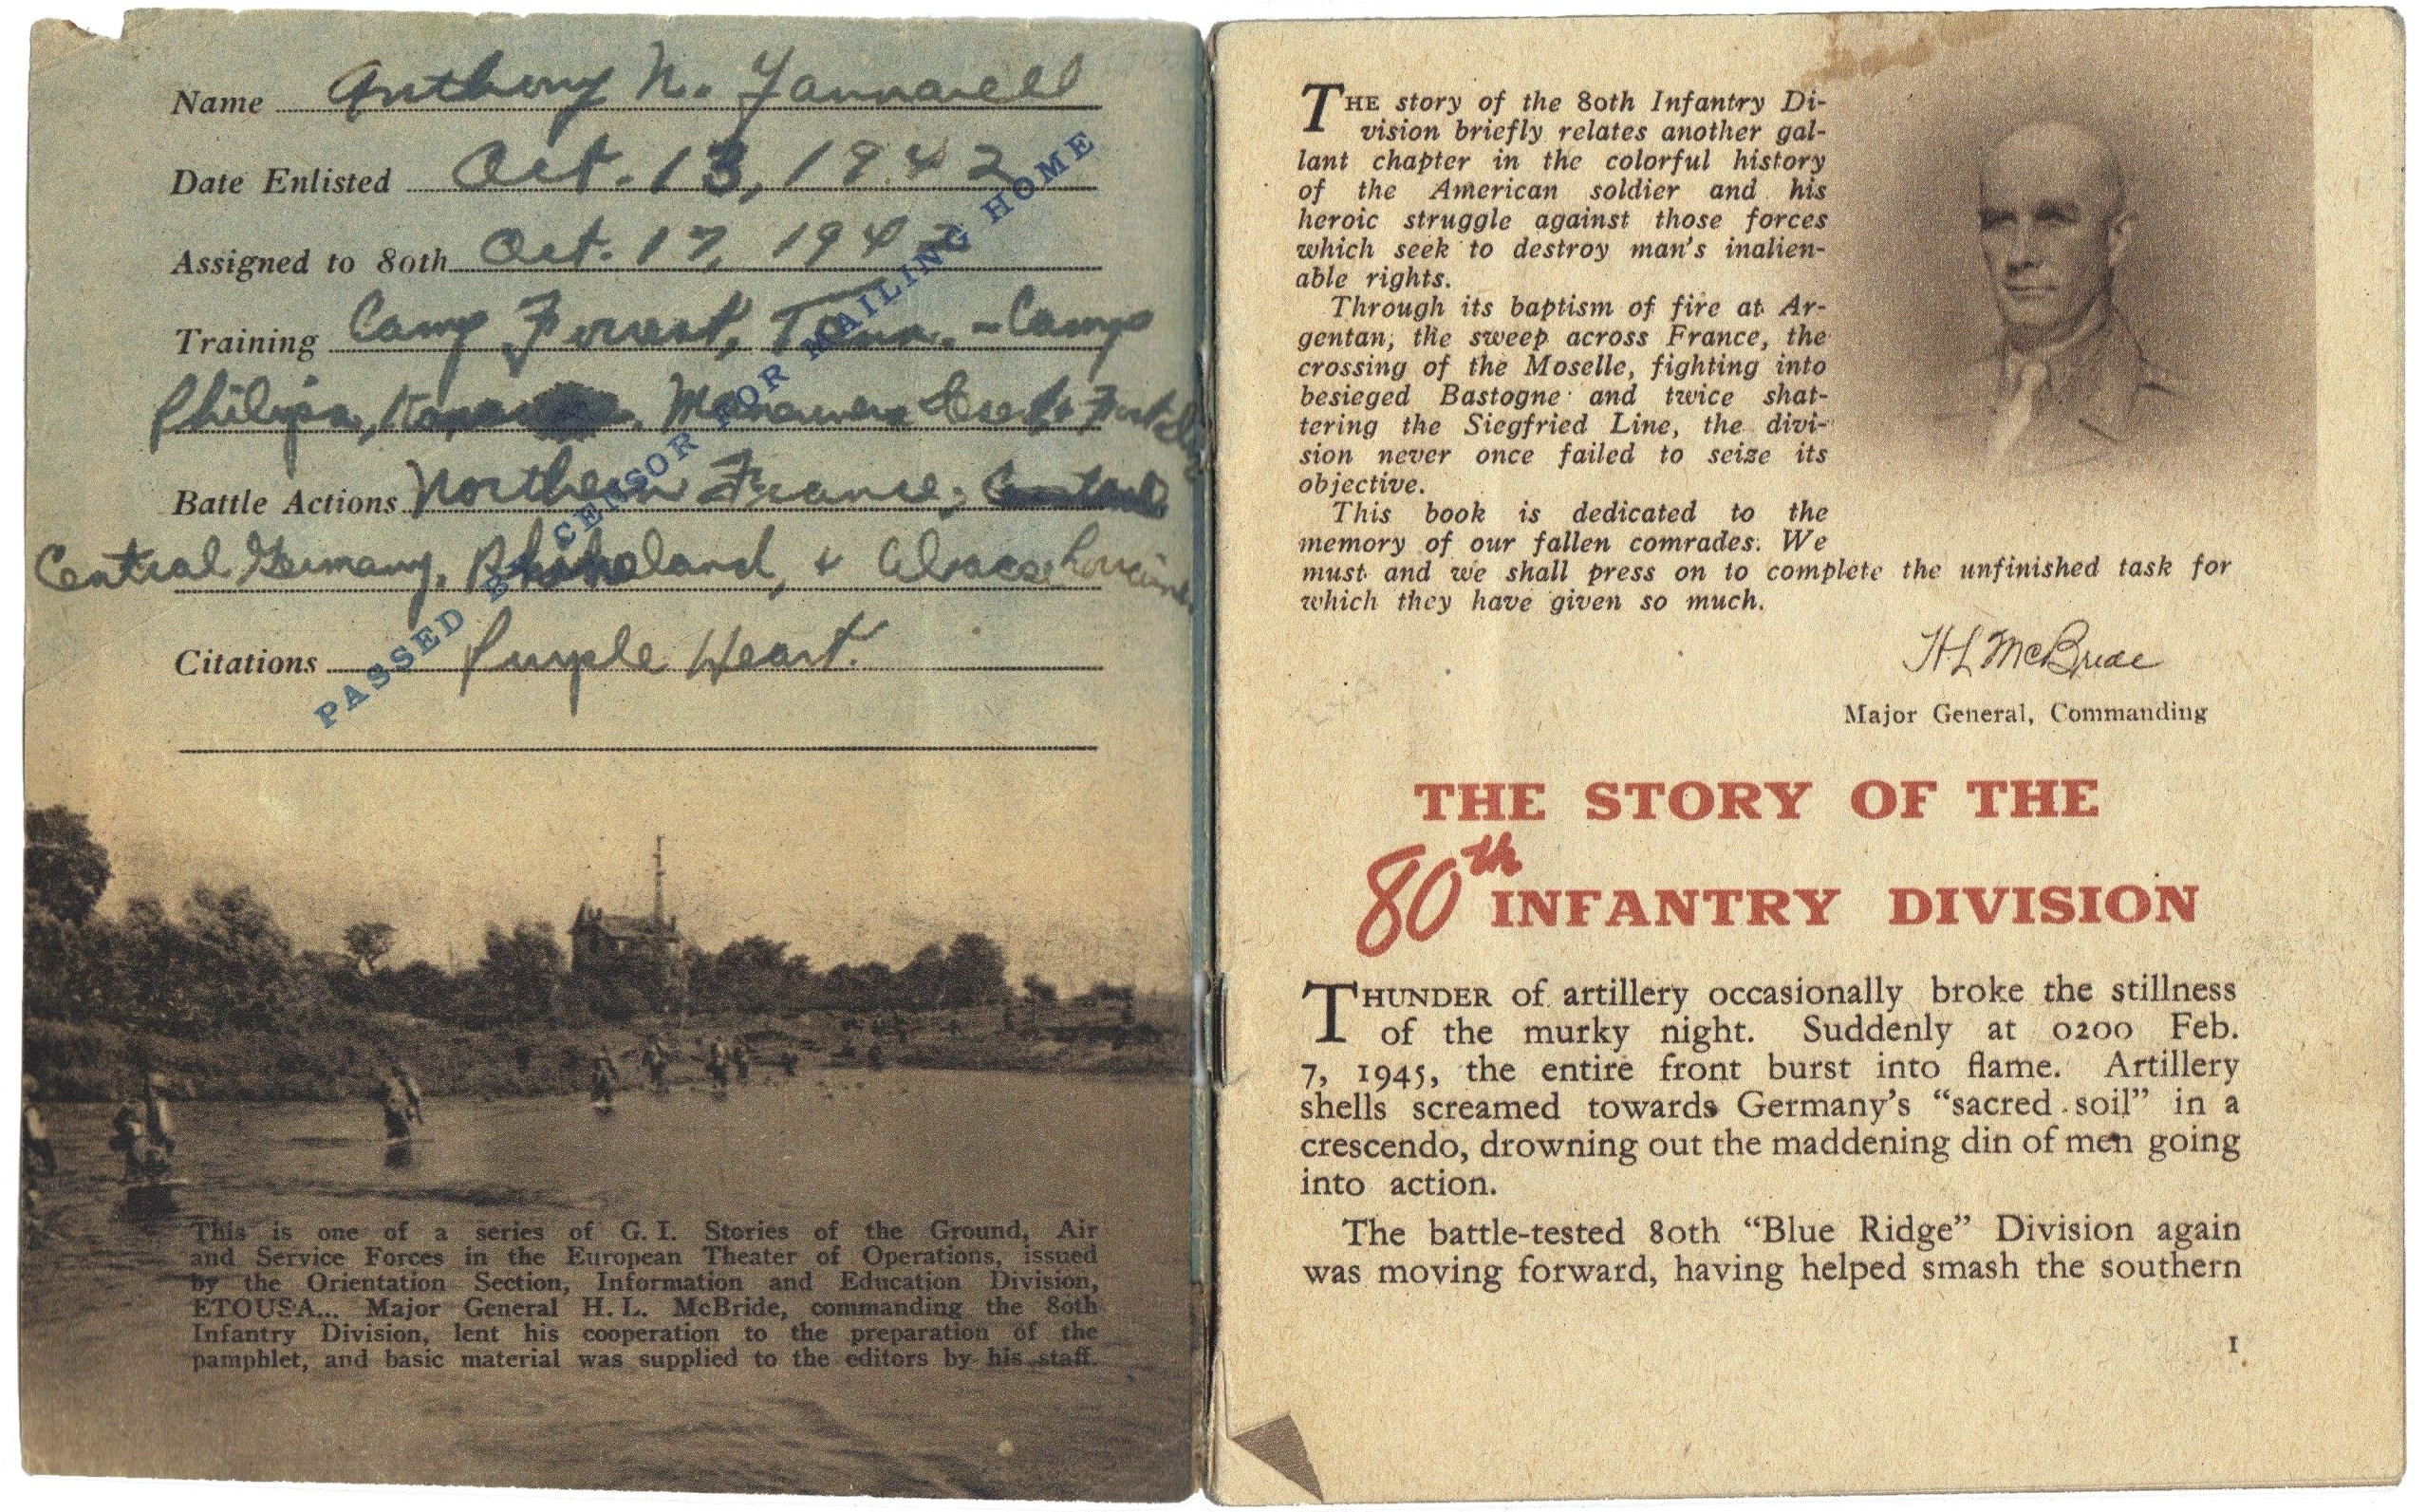 Name Anthony N. Yannarell
Date Enlisted Oct. 13, 1942
Assigned to 80th Oct. 17, 1942
Training Camp Forrest, Tenn. - Camp
Philips, Maneuvers
Battle Actions Northern France, Central
Central Germany, Rhineland, + Alsace Lorraine.
Citations Purple Heart.
PASSED BY CENSOR FOR MAILING HOME
This is one of a series of G. I. Stories of the Ground, Air
and Service Forces in the European Theater of Operations, issued
by the Orientation Section, Information and Education Division,
ETOUSA... Major General H. L. McBride, commanding the 80th
Infantry Division, lent his cooperation to the preparation of the
pamphlet, and basic material was supplied to the editors by his staff.
THE story of the 80th Infantry Di-
vision briefly relates another gal-
lant chapter in the colorful history
of the American soldier and his
heroic struggle against those forces
which seek to destroy man's inalien-
able rights.
Through its baptism of fire at Ar-
gentan, the sweep across France, the
crossing of the Moselle, fighting into
besieged Bastogne and twice shat-
tering the Siegfried Line, the divi-
sion never once failed to seize its
objective.
This book is dedicated to the
memory of our fallen comrades. We
must and we shall press on to complete the unfinished task for
which they have given so much.
H L McBride
Major General, Commanding
THE STORY OF THE
80th INFANTRY DIVISION
THUNDER of artillery occasionally broke the stillness
of the murky night. Suddenly at 0200 Feb.
7, 1945, the entire front burst into flame. Artillery
shells screamed towards Germany's “sacred soil” in a
crescendo, drowning out the maddening din of men going
into action.
The battle-tested 80th “Blue Ridge” Division again
was moving forward, having helped smash the southern
1